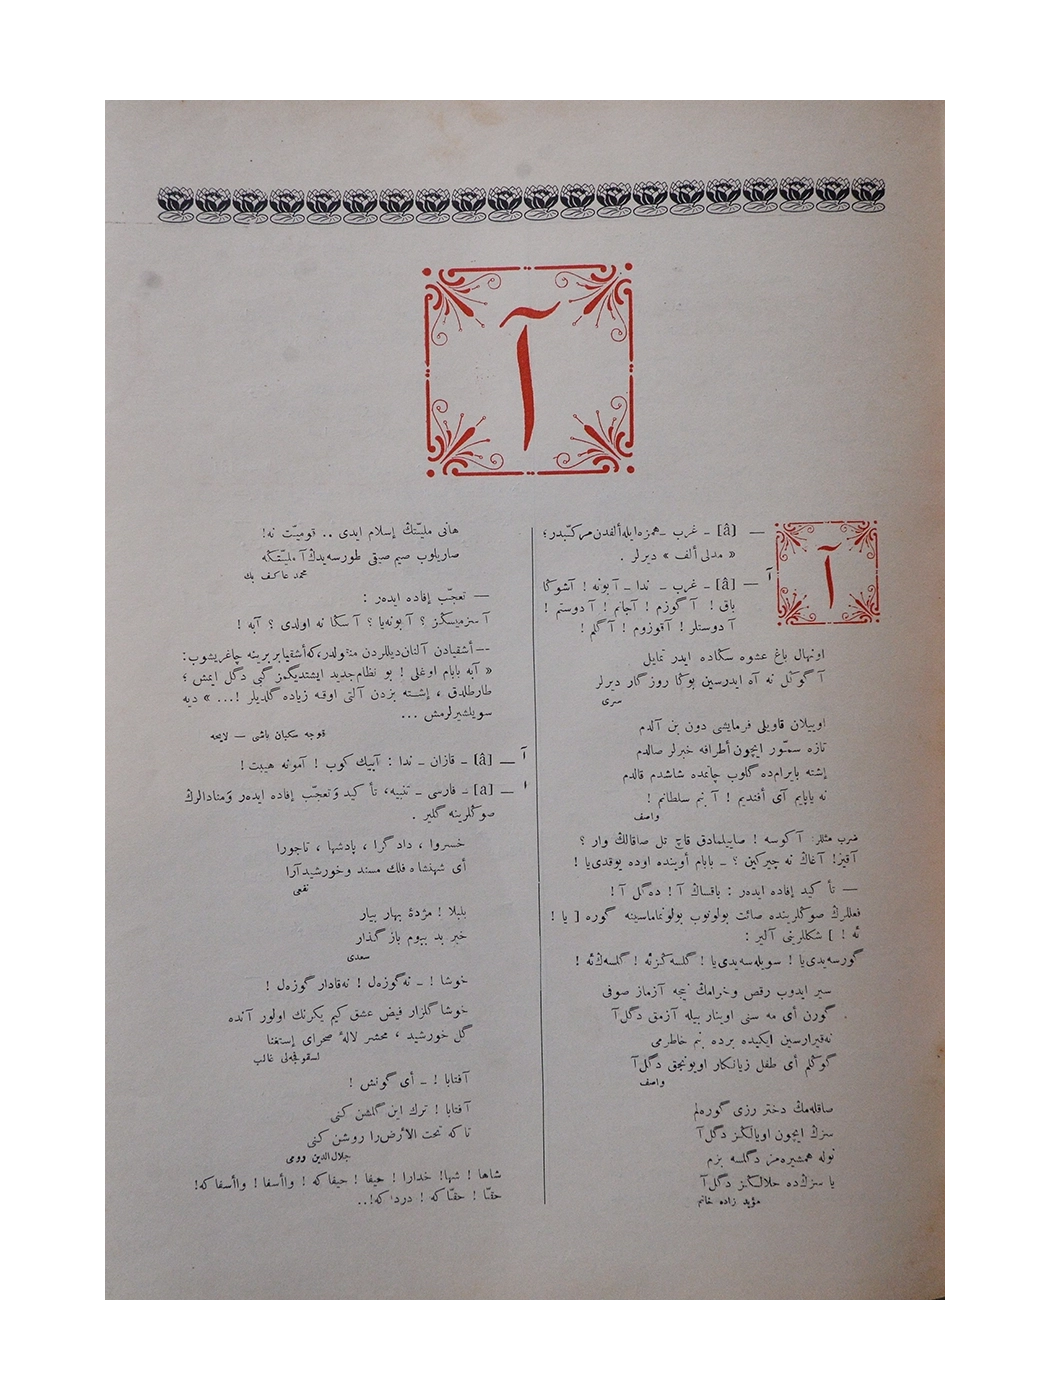 آ
آ
— [â] ـ غرب ـ همزه ايله ألفدن مركبدر ؛
« مدلى ألف » ديرلر .
آ — [â] ـ غرب ـ ندا ـ آ بونه ! آ شوكا
باق ! آ گوزم ! آ جانم ! آ دوستم !
آ دوستلر ! آ قوزوم ! آ گلم !
اونهال باغ عشوه سكاده ايدر تمايل
آ گوكل نه آه ايدرسين بوكا روزگار ديرلر
سرى
اوييلان قاويلى فرمايشى دون بن آلدم
تازه سمّور ايچون أطرافه خبرلر صالدم
إشته بايرام‌ده گلوب چاتمده شاشدم قالدم
نه ياپايم آى أفنديم ! آ بنم سلطانم !
واصف
ضرب مثللر: آ كوسه ! صاييلمادق قاچ تل صاقالك وار ؟
آ قيز! آغاك نه چيركين ؟ ـ بابام أوينده اوده يوقدى‌يا !
— تأ كيد إفاده ايده‌ر : باقساڭ آ ! ده‌گل آ !
فعللرك صوكلرينده صائت بولونوب بولونماماسينه گوره [ يا !
ئه ! ] شكللرينى آلير :
گورسه‌يدى‌يا ! سويله‌سه‌يدى‌يا ! گلسه‌كزئه ! گلسه‌ڭ‌ئه !
سير ايدوب رقص وخرامڭ نيجه آزماز صوفى
گورن أى مه سنى اوينار بيله آزمق دگل‌آ
نه‌قيرارسين ايكيده برده بنم خاطرمى
گوكلم أى طفل زيانكار اويونجق دگل‌آ
واصف
صاقله‌مڭ دختر رزى گوره‌لم
سزڭ ايچون اويالڭز دگل‌آ
نوله همشيره‌مز دگلسه بزم
يا سزڭ‌ده حلالڭز دگل‌آ
مؤيد زاده خاتم
هانى مليتڭ إسلام ايدى .. قوميّت نه!
صاريلوب صيم صيقى طورسه‌يدڭ آ مليّتڭه
محمد عاكف بك
— تعجّب إفاده ايده‌ر :
آ سزميسڭز ؟ آ بونه‌يا ؟ آ سكا نه اولدى ؟ آبه !
— أشقيادن آلنان ديللردن منقولدر، كه أشقيا بربرينه چاغريشوب :
« آبه بابام اوغلى ! بو نظام جديد ايشتديگمز گبى دگل ايمش ؛
طارطلدق ، إشته بزدن آلتى اوقه زياده گلديلر !... » ديه
سويلشيرلرمش ...
قوجه سكبان باشى — لايحه
آ — [â] ـ قازان ـ ندا : آبيك كوب ! آمونه هيبت !
ا — [a] ـ فارسى ـ تنبيه، تأ كيد وتعجّب إفاده ايده‌ر ومنادالرك
صوڭلرينه گلير .
خسروا ، دادگرا ، پادشها ، تاجورا
أى شهنشاه فلك مسند وخورشيدآرا
نفعى
بلبلا ! مژدهٔ بهار بيار
خبر بد ببوم باز گذار
سعدى
خوشا ! ـ نه‌گوزه‌ل ! نه‌قادار گوزه‌ل !
خوشا گلزار فيض عشق كيم يكرنك اولور آنده
گل خورشيد ، محشر لالهٔ صحراى إستغنا
لسقوفچه‌لى غالب
آفتابا ! ـ أى گونش !
آفتابا ! ترك اين گلشن كنى
تاكه تحت الأرض‌را روشن كنى
جلال‌الدين رومى
شاها ! شها! خدارا ! حيفا ! حيفاكه ! واأسفا ! واأسفاكه!
حقّا ! حقّاكه ! درداكه!..